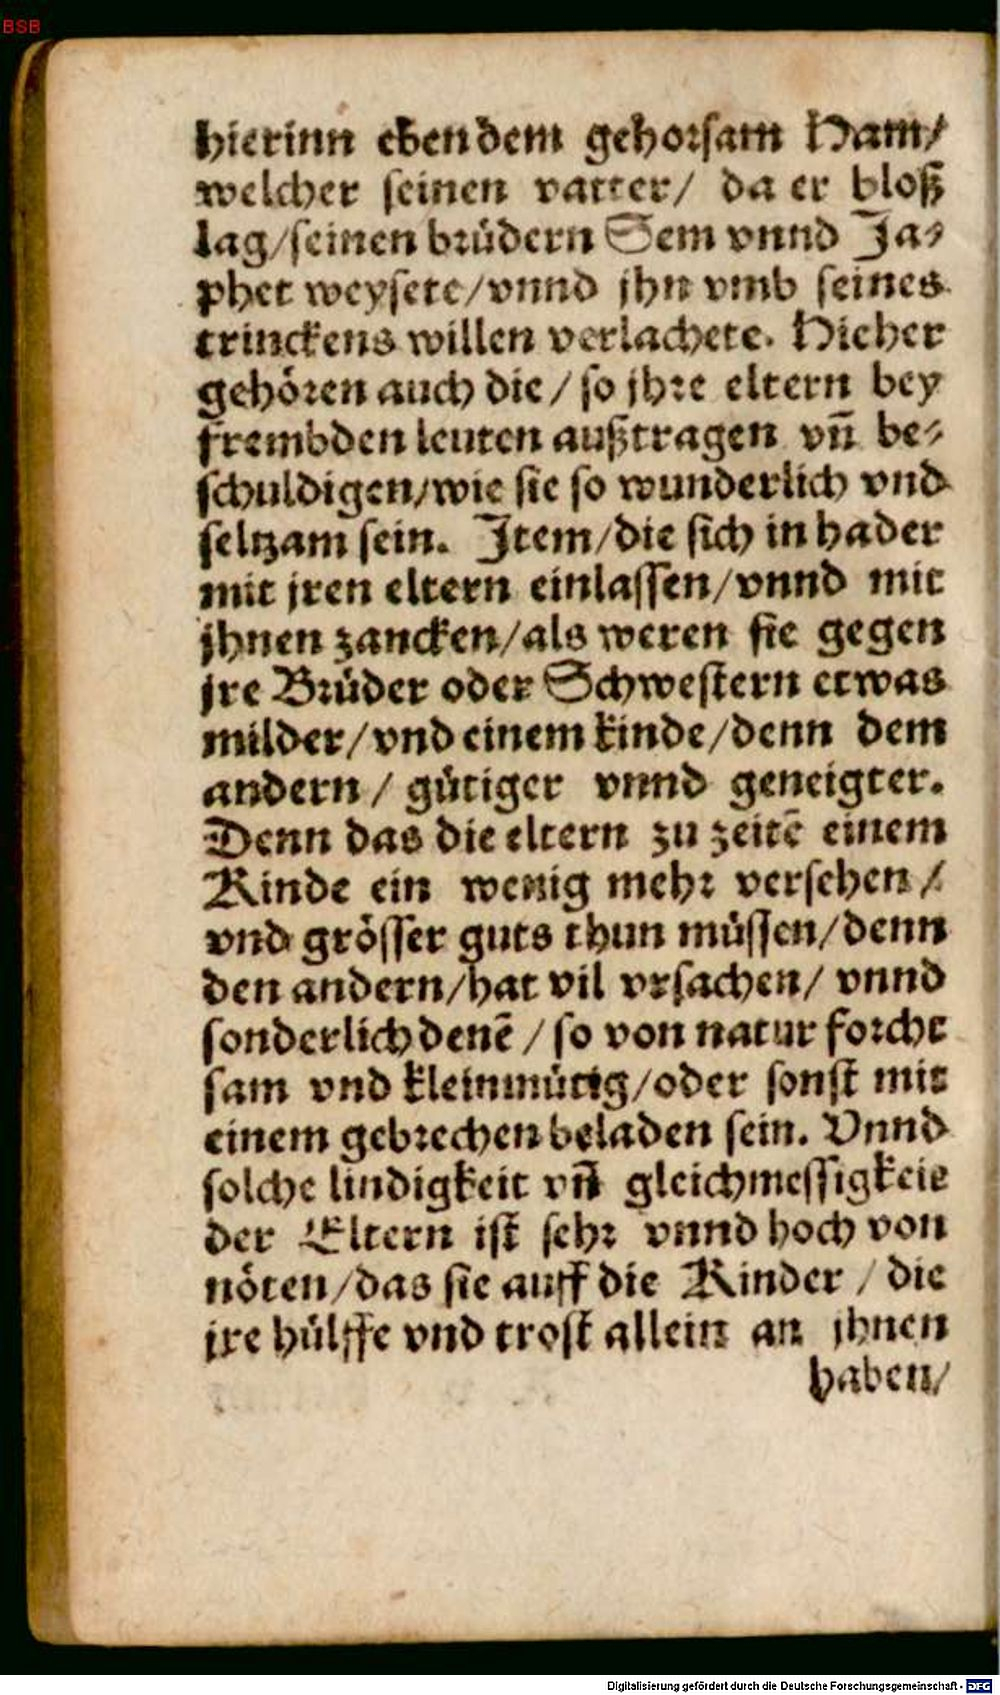 BSB
hierinn eben dem gehorsam Ham/
welcher seinen vatter/ da er bloß
lag/seinen brüdern Sem vnnd Ja⸗
phet weysete/vnnd jhn vmb seines
trinckens willen verlachete. Hieher
gehören auch die / so jhre eltern bey
frembden leuten außtragen vn̄ be⸗
schuldigen/wie sie so wunderlich vnd
seltzam sein. Item/die sich in hader
mit jren eltern einlassen/vnnd mit
jhnen zancken/als weren sie gegen
jre Brüder oder Schwestern etwas
milder/vnd einem kinde/denn dem
andern / gütiger vnnd geneigter.
Denn das die eltern zu zeitē einem
Kinde ein wenig mehr versehen /
vnd grösser guts thun müssen/denn
den andern/hat vil vrsachen/ vnnd
sonderlich denē / so von natur forcht
sam vnd kleinmütig/oder sonst mit
einem gebrechen beladen sein. Vnnd
solche lindigkeit vn̄ gleichmessigkeit
der Eltern ist sehr vnnd hoch von
nöten/das sie auff die Kinder / die
jre hülffe vnd trost allein an jhnen
haben/
Digitalisierung gefördert durch die Deutsche Forschungsgemeinschaft - DFG